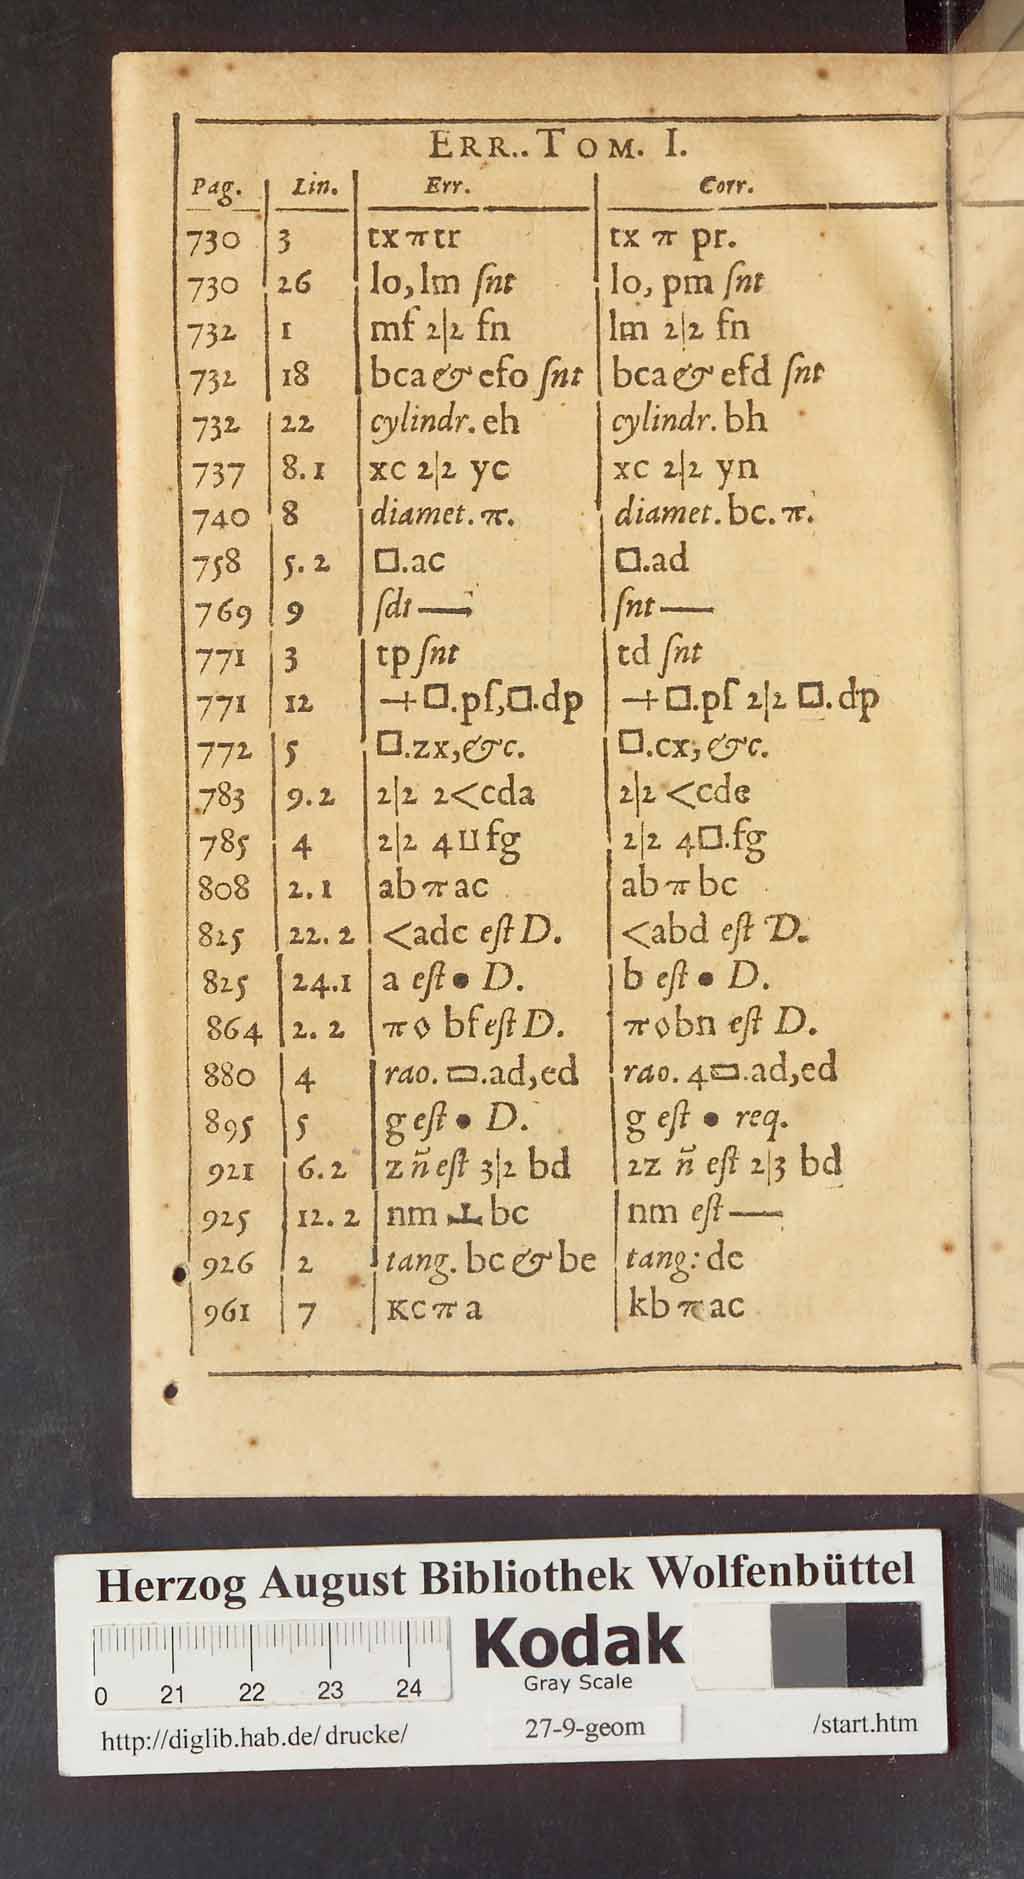 ERR.. TOM. I.
Pag. Lin. Err. Corr.
730 3 tx π tr tx π pr.
730 26 lo, lm ſnt lo, pm ſnt
732 1 mf 2|2 fn lm 2|2 fn
732 18 bca & efo ſnt bca & efd ſnt
732 22 cylindr. eh cylindr. bh
737 8.1 xc 2|2 yc xc 2|2 yn
740 8 diamet. π. diamet. bc. π.
758 5.2 □.ac □.ad
769 9 ſdt — ſnt —
771 3 tp ſnt td ſnt
771 12 —+ □.pſ, □.dp —+ □.pſ 2|2 □.dp
772 5 □.zx, &c. □.cx, &c.
783 9.2 2|2 2<cda 2|2 <cde
785 4 2|2 4 ⊔ fg 2|2 4□.fg
808 2.1 ab π ac ab π bc
825 22.2 <adc eſt D. <abd eſt D.
825 24.1 a eſt • D. b eſt • D.
864 2.2 π ◊ bf eſt D. π ◊ bn eſt D.
880 4 rao. ▭.ad,ed rao. 4▭.ad,ed
895 5 g eſt • D. g eſt • req.
921 6.2 z n̄ eſt 3|2 bd 2z n̄ eſt 2|3 bd
925 12.2 nm ⊥ bc nm eſt —
926 2 tang. bc & be tang: de
961 7 kc π a kb π ac
Herzog August Bibliothek Wolfenbüttel
0 21 22 23 24
Kodak
Gray Scale
http://diglib.hab.de/drucke/ 27-9-geom /start.htm